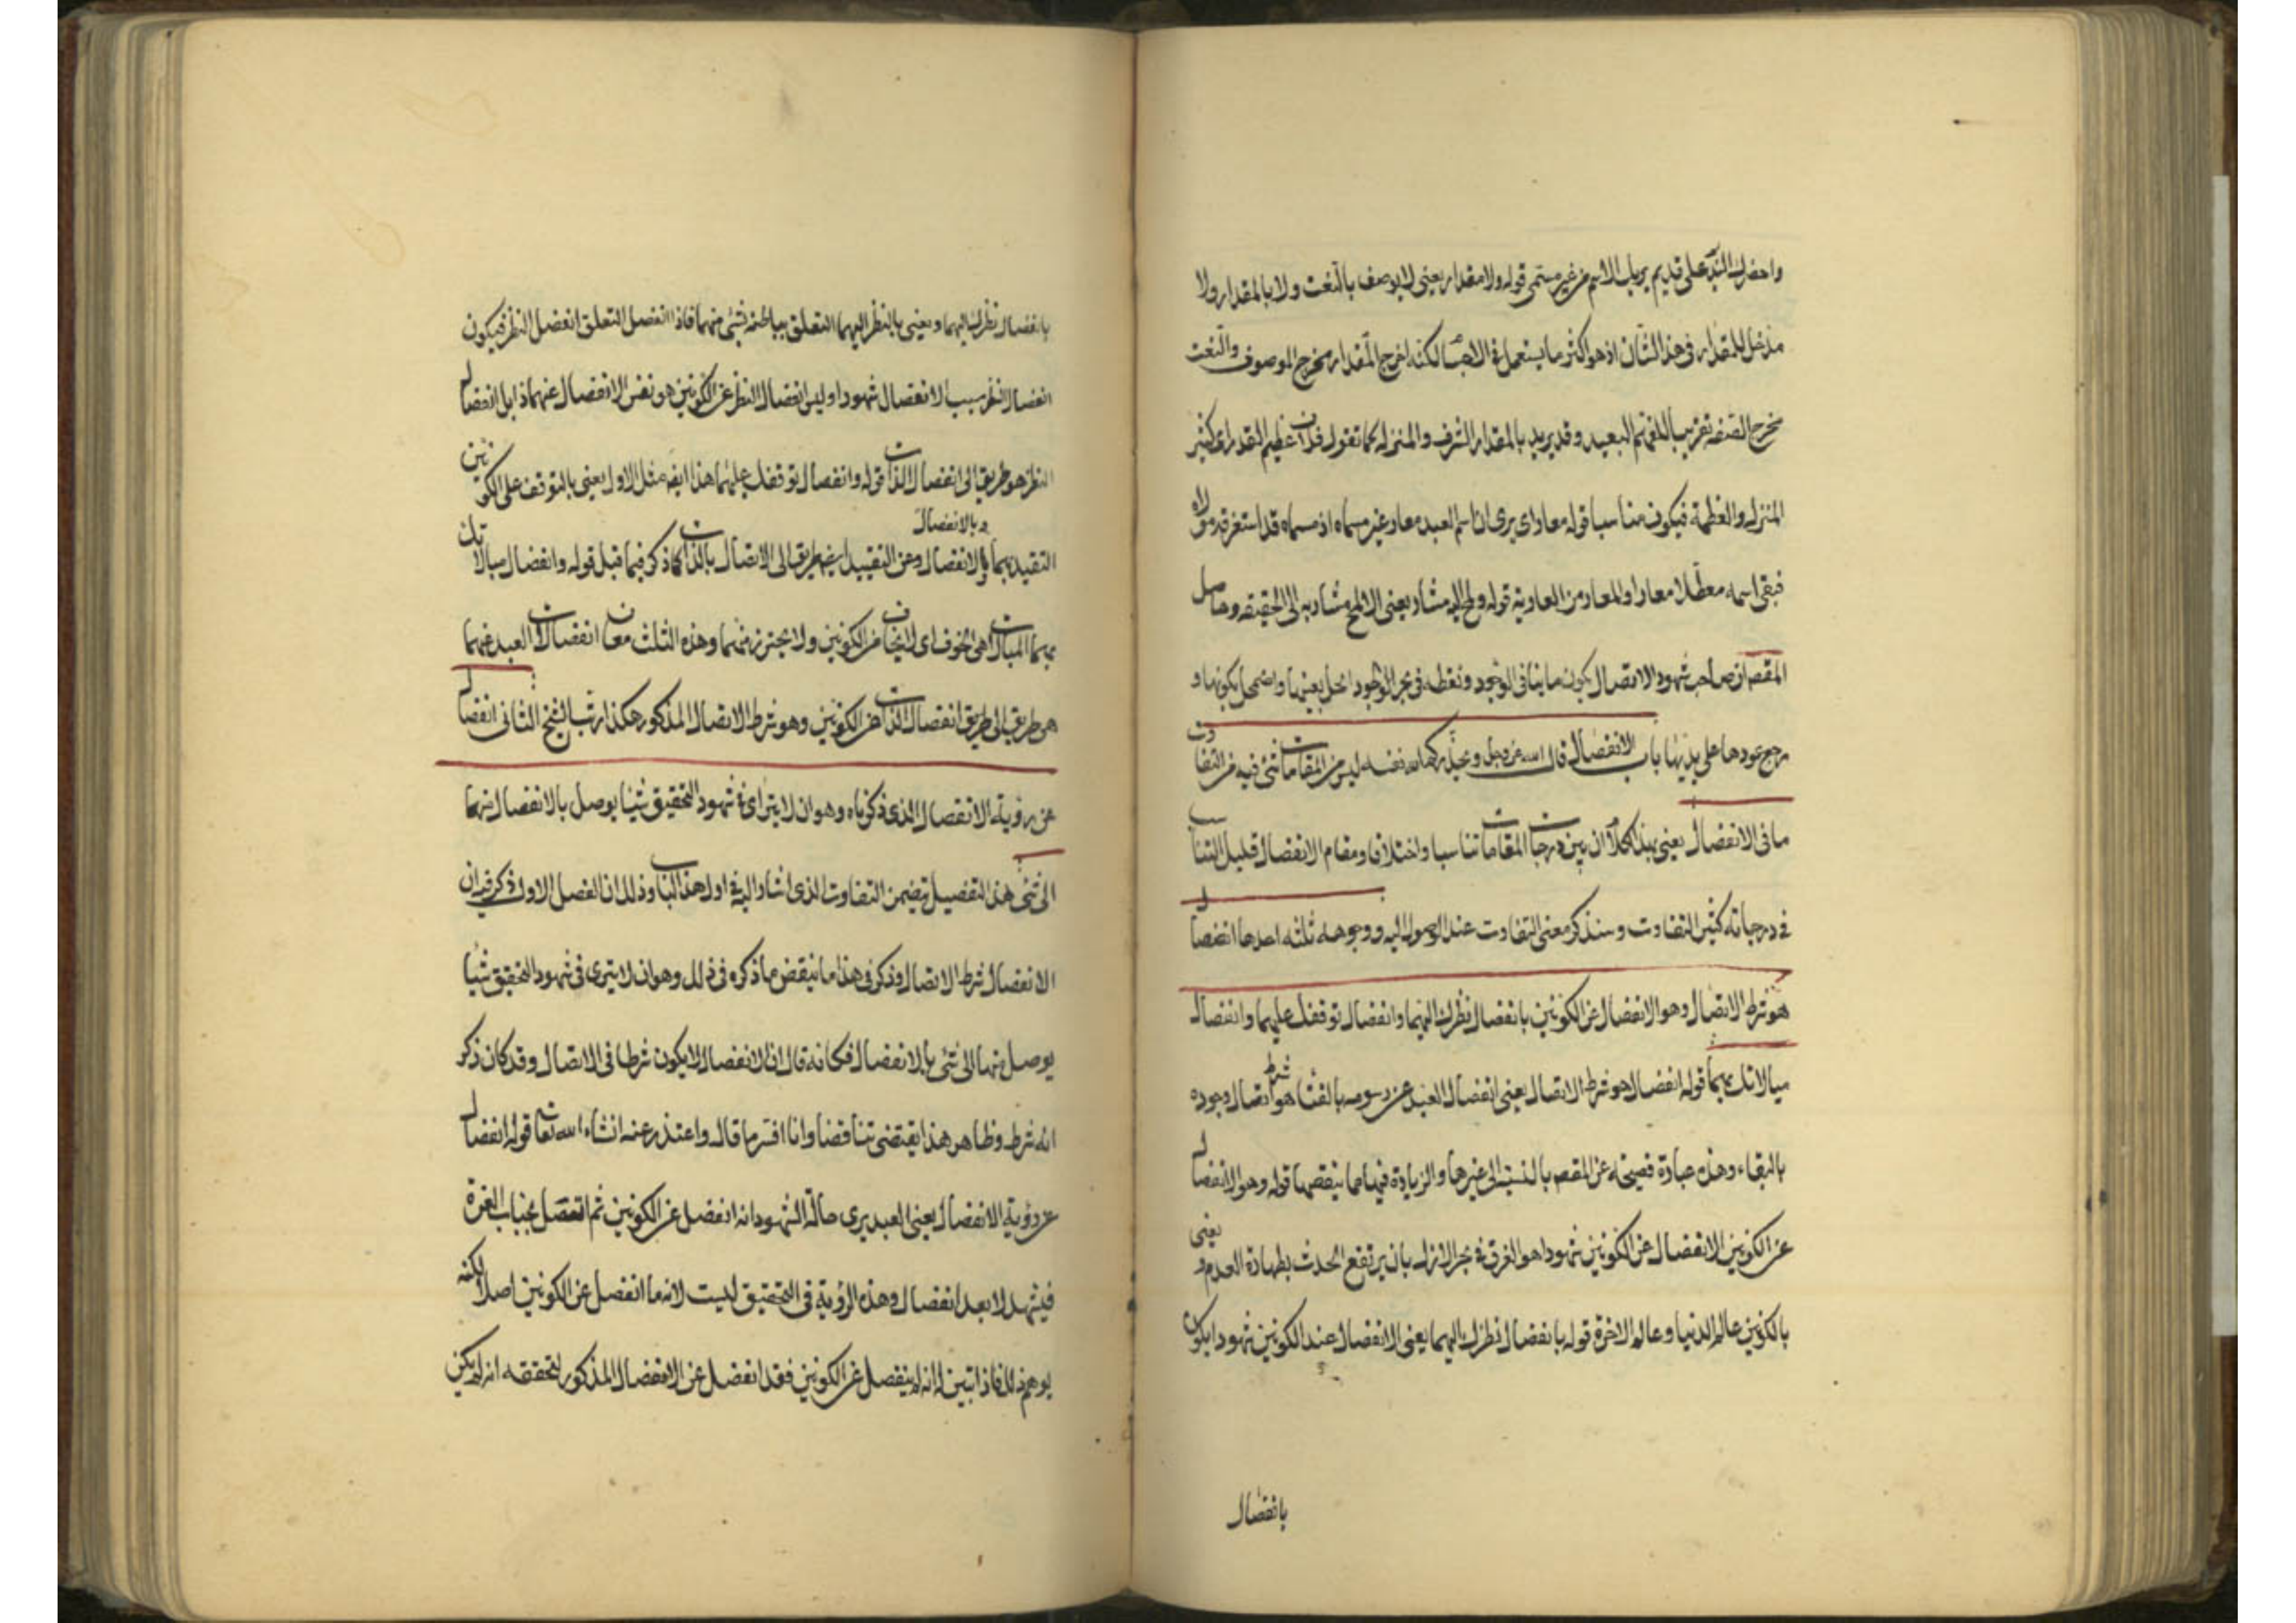 مدخل للمقدار في هذا الشان اذ هو اكثر ما يستعمل في الاجسا لكنه اخرج المقدار مخرج الموصوف والنعت
مخرج الصفه تقريبا للفهم البعيد وقد يريد بالمقدار الشرف والمنزله كما تقول فلان عظيم القدر اي كثير
المنزله والعظمة فيكون مناسبا قوله معار اي يرى ان اسم العبد معار وغير مسماه اذ مسماه قد استغرقه مولاه
فبقي اسمه معطلا معارا والمعار من العارية قوله ولمح اليه مشار يعني الا لمح مشار به الى الحقيقه وحاصل
المقصد ان صاحب شهود الاتصال يكون ما ينافي الوجود ونقطه في بحر الوجود انحل تعينها واضمحل تكونها و
رجع عودها على بديها باب الانفصال قال الله عز وجل ويحذركم الله نفسه ليس من المقامات شي فيه من التفاوت
ما في الانفصال يعني بهذا الكلام ان بين درجات المقامات تناسبا واختلافا ومقام الانفصال قليل التناسب
في درجاته كثير التفاوت وسنذكر معنى التفاوت عند الوصول اليه ووجوهه ثلثه احدها انفصال
هو شرط الاتصال وهو الانفصال عن الكونين بانفصال نظرك اليهما وانفصال توقفك عليهما وانفصال
مبالاتك بهما قوله انفصال هو شرط الاتصال يعني انفصال العبد عن رسومه بالفنا هو شرط اتصال وجوده
بالبقاء وهذه عبادة فصيحة عن المقصد بالنسبة الى غيرها والزيادة فيها مما ينقصها قوله وهو الانفصال
عن الكونين الانفصال عن الكونين شهودا هو الغرق في بحر الازل بان يرتفع الحدث بطهارة العدم و يعني
بالكونين عالم الدنيا وعالم الاخرة قوله بانفصال نظرك اليهما يعني الانفصال عند الكونين شهودا يكون
بانفصال
بانفصال نظرك اليهما ويعني بالنظر اليهما التعلق بباطنه شي منهما فاذا انفصل التعلق انفصل النظر فيكون
انفصال النظر سببا لانفصال شهودا وليس انفصال النظر عن الكونين هو نفس الانفصال عنهما ذابل انفصال
النظر هو طريق الى انفصال الذات قوله وانفصال توقفك عليهما هذا ايضه مثل الاول يعني بالتوقف على الكونين
وبالانفصال
التقيد بهما وبالانفصال وعن التقييد ايضه طريق الى الاتصال بالذات كما ذكر فيما قبل قوله وانفصال مبالاتك
بهما المبالات هي الخوف اي لا يخاف من الكونين ولا يحترز منهما وهذه الثلث معان انفصالات العبد عنهما
هي طريق الى طريق انفصال الذات عن الكونين وهو شرط الاتصال المذكور هكذا رتب الشيخ الثاني انفصال
عن رؤية الانفصال الذي ذكرناه وهو ان لا يتراى في شهود التحقيق شيئا يوصل بالانفصال منهما
الى شي هذا التفصيل يتضمن التفاوت الذي اشار اليه في اول هذا الباب وذلك ان الفصل الاول ذكر فيه ان
الانفصال شرط الاتصال وذكر في هذا ما ينقض ما ذكره في ذلك وهو ان لا يترى في شهود التحقيق شيا
يوصل منهما الى شي بالانفصال فكانه قال ان الانفصال لا يكون شرطا في الاتصال وقد كان ذكر
انه شرط وظاهر هذا يقتضي تناقضا وانا افسر ما قال واعتذر عنه انشاء الله تعالى قوله انفصال
عن رؤية الانفصال يعني العبد يرى حالة الشهود انه انفصل عن الكونين ثم اتصل بجناب العزة
فيشهد لا بعد انفصال وهذه الرؤية في التحقيق ليست لانه ما انفصل عن الكونين اصلا لكنه
يوهم ذلك فاذا تبين له انه لم ينفصل عن الكونين فقد انفصل عن الانفصال المذكور لتحققه انه لم يكن